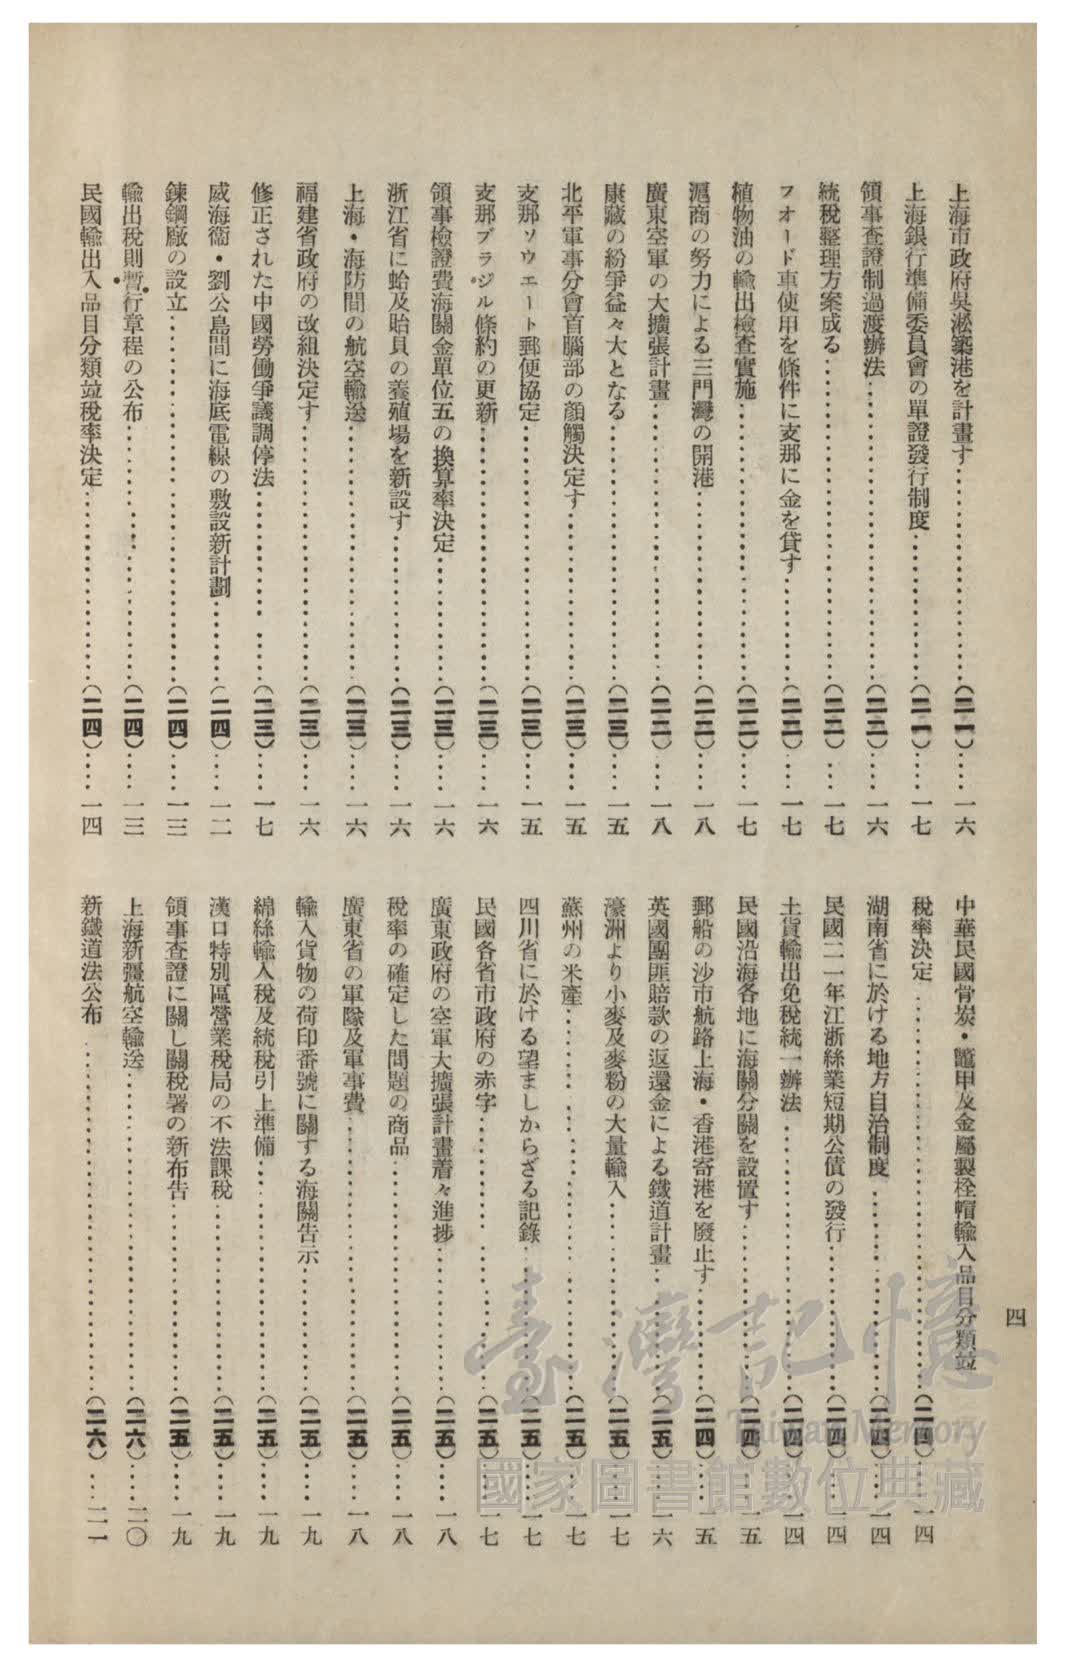 上海市政府吳淞築港を計畫す……（二一）……一六
上海銀行準備委員會の單證發行制度……（二一）……一七
領事査證制過渡辦法……（二二）……一六
統稅整理方案成る……（二二）……一七
フオード車使用を條件に支那に金を貸す……（二二）……一七
植物油の輸出檢査實施……（二二）……一七
滬商の努力による三門灣の開港……（二二）……一八
廣東空軍の大擴張計畫……（二二）……一八
康藏の紛爭益々大となる……（二三）……一五
北平軍事分會首腦部の顏觸決定す……（二三）……一五
支那ソウエート郵便協定……（二三）……一五
支那ブラジル條約の更新……（二三）……一六
領事檢證費海關金單位五の換算率決定……（二三）……一六
浙江省に蛤及貽貝の養殖場を新設す……（二三）……一六
上海・海防間の航空輸送……（二三）……一六
福建省政府の改組決定す……（二三）……一六
修正された中國勞働爭議調停法……（二三）……一七
威海衞・劉公島間に海底電線の敷設新計劃……（二四）……一二
鍊鋼廠の設立……（二四）……一三
輸出稅則暫行章程の公布……（二四）……一三
民國輸出入品目分類竝稅率決定……（二四）……一四
中華民國骨炭・鼈甲及金屬製栓帽輸入品目分類竝
稅率決定……（二四）……一四
湖南省に於ける地方自治制度……（二四）……一四
民國二一年江浙絲業短期公債の發行……（二四）……一四
土貨輸出免稅統一辦法……（二四）……一四
民國沿海各地に海關分關を設置す……（二四）……一五
郵船の沙市航路上海・香港寄港を廢止す……（二四）……一五
英國團匪賠款の返還金による鐵道計畫……（二五）……一六
濠洲より小麥及麥粉の大量輸入……（二五）……一七
蘇州の米產……（二五）……一七
四川省に於ける望ましからざる記錄……（二五）……一七
民國各省市政府の赤字……（二五）……一七
廣東政府の空軍大擴張計畫着々進捗……（二五）……一八
稅率の確定した問題の商品……（二五）……一八
廣東省の軍隊及軍事費……（二五）……一八
輸入貨物の荷印番號に關する海關告示……（二五）……一九
綿絲輸入稅及統稅引上準備……（二五）……一九
漢口特別區營業稅局の不法課稅……（二五）……一九
領事査證に關し關稅署の新布告……（二五）……一九
上海新疆航空輸送……（二六）……二〇
新鐵道法公布……（二六）……二一
四
臺灣記憶
Taiwan Memory
國家圖書館數位典藏